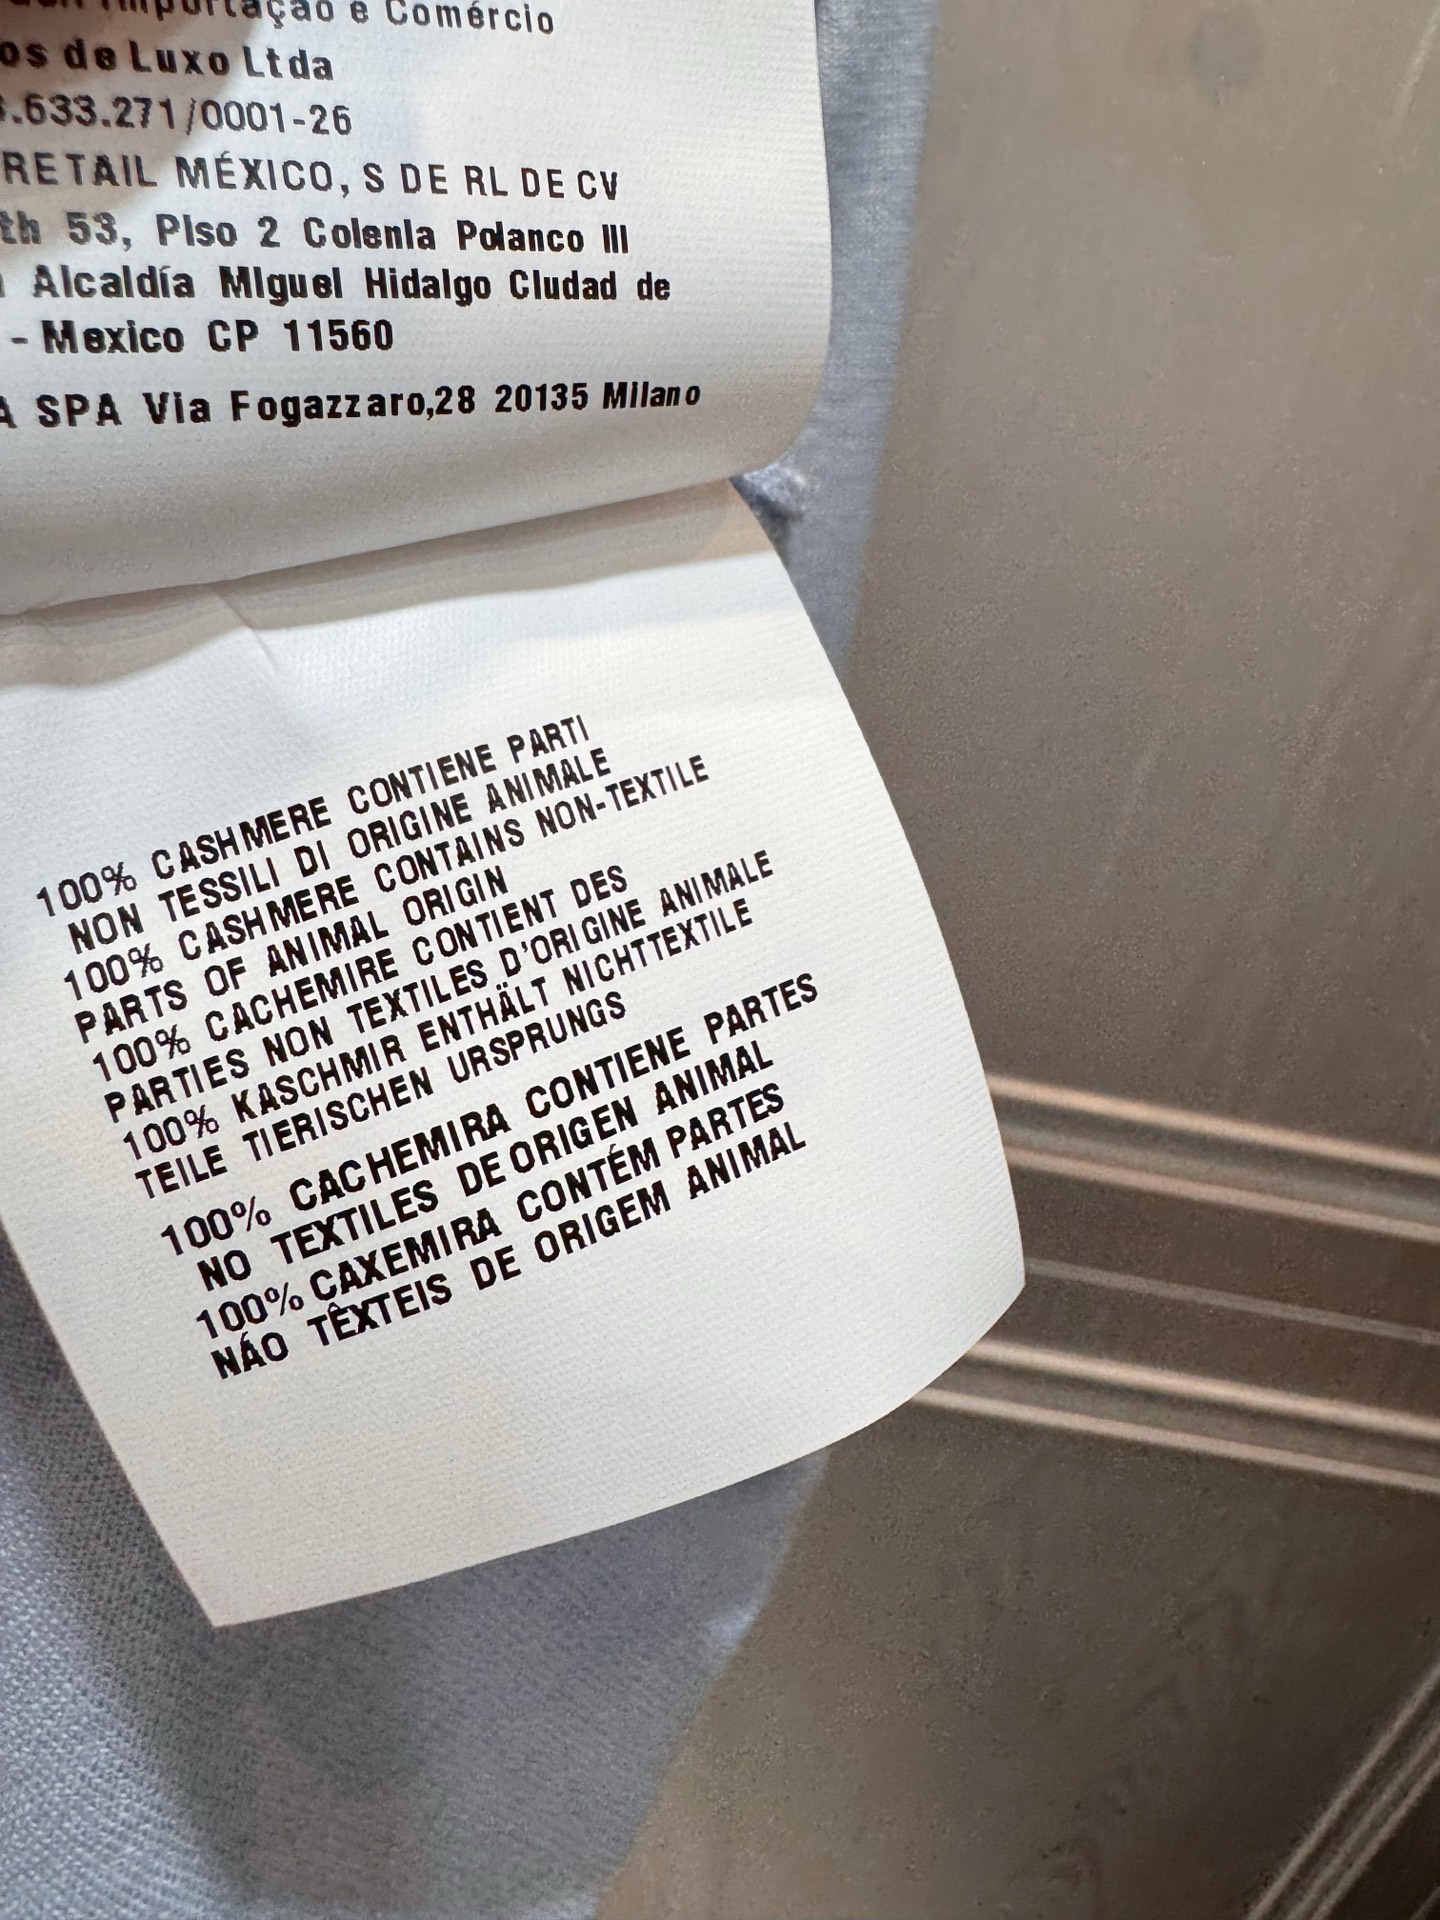 Importação e Comércio
os de Luxo Ltda
.633.271/0001-26
RETAIL MÉXICO, S DE RL DE CV
th 53, Piso 2 Colenia Polanco III
Alcaldía Miguel Hidalgo Ciudad de
- Mexico CP 11560
A SPA Via Fogazzaro,28 20135 Milano
100% CASHMERE CONTIENE PARTI
NON TESSILI DI ORIGINE ANIMALE
100% CASHMERE CONTAINS NON-TEXTILE
PARTS OF ANIMAL ORIGIN
100% CACHEMIRE CONTIENT DES
PARTIES NON TEXTILES D'ORIGINE ANIMALE
100% KASCHMIR ENTHÄLT NICHTTEXTILE
TEILE TIERISCHEN URSPRUNGS
100% CACHEMIRA CONTIENE PARTES
NO TEXTILES DE ORIGEN ANIMAL
100% CAXEMIRA CONTÉM PARTES
NÁO TÊXTEIS DE ORIGEM ANIMAL